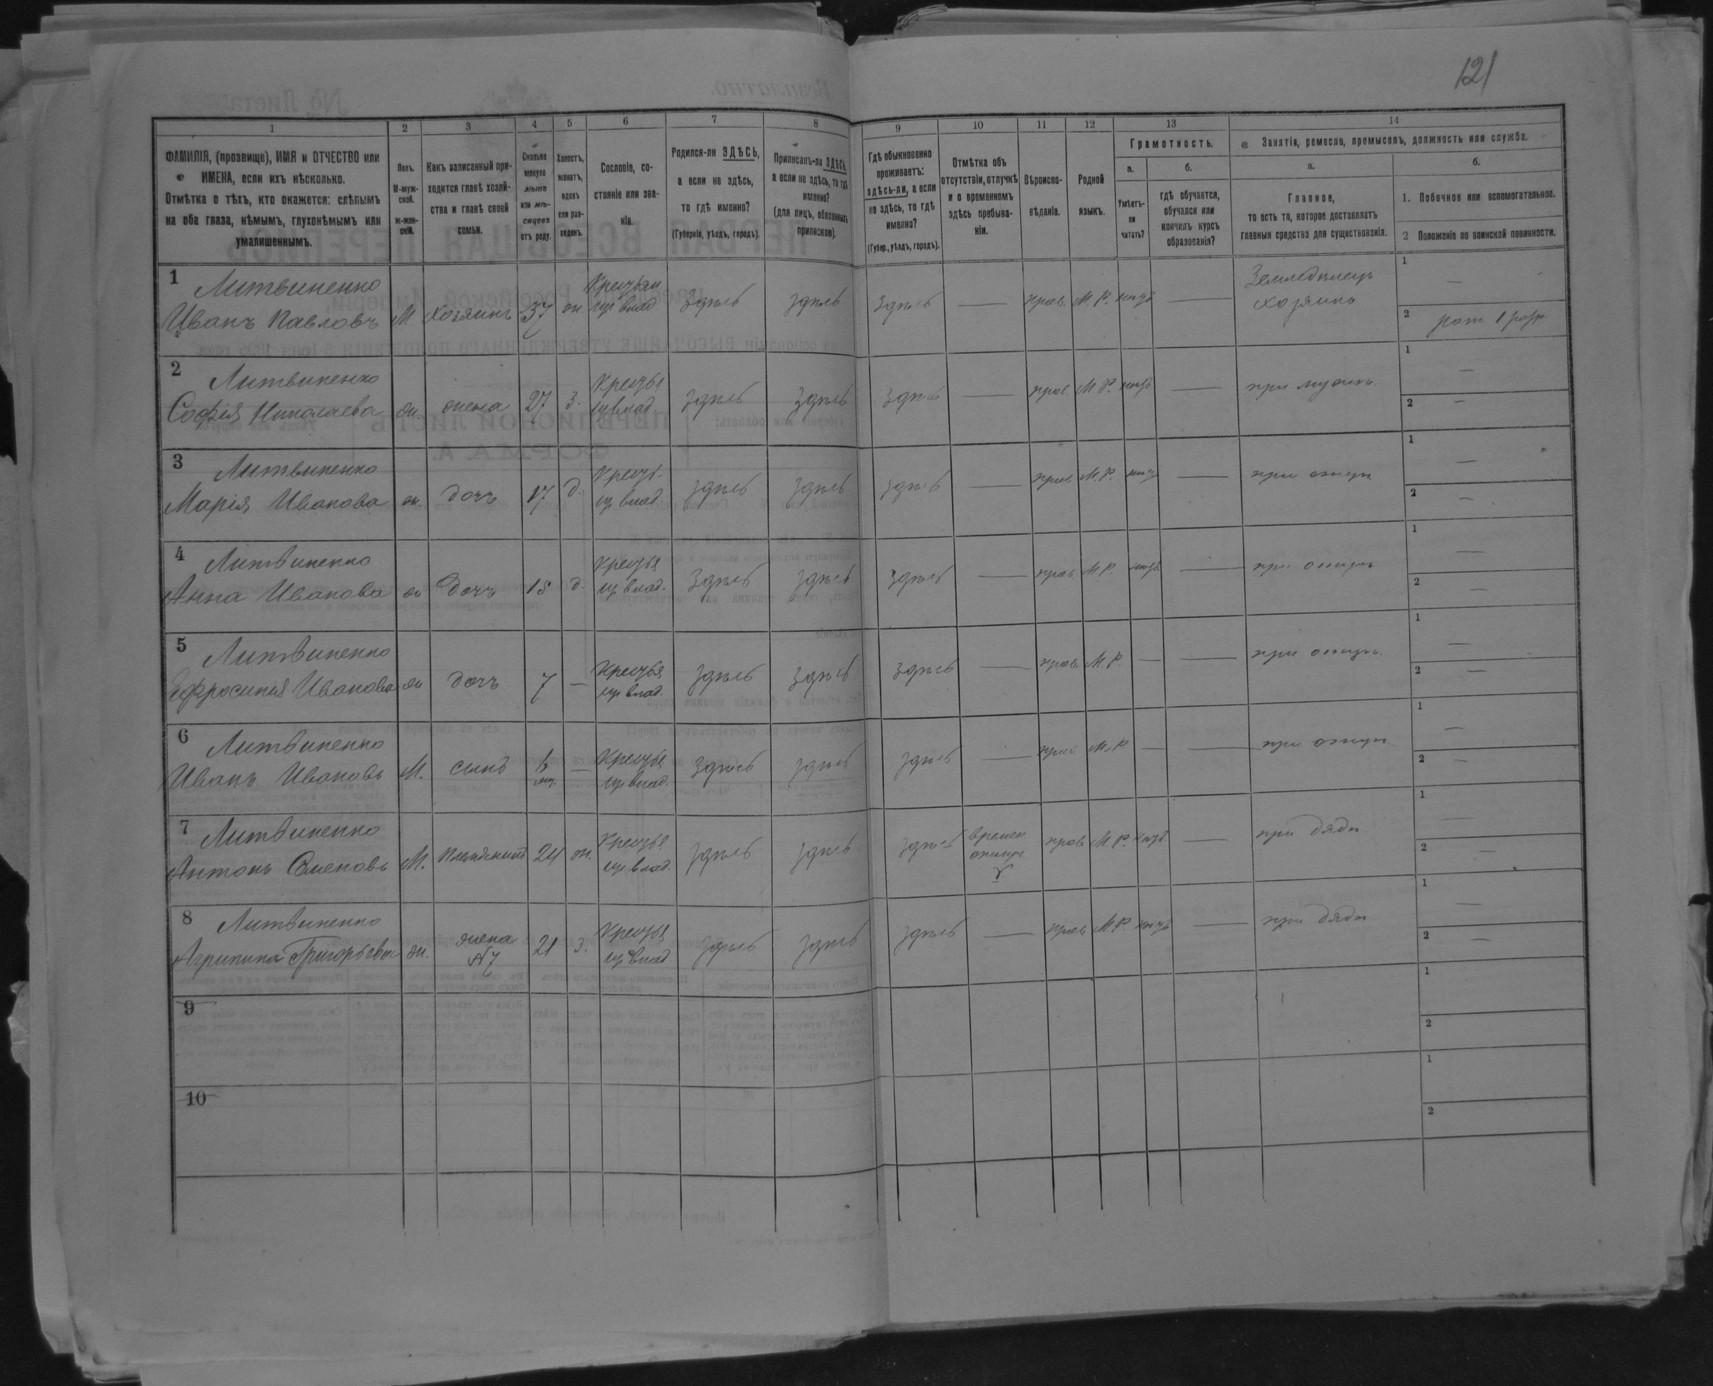 121
1 2 3 4 5 6 7 8 9 10 11 12 13 14
ФАМИЛІЯ, (прозвище), ИМЯ и ОТЧЕСТВО или
ИМЕНА, если ихъ нѣсколько.
Отмѣтка о тѣхъ, кто окажется: слѣпымъ
на оба глаза, нѣмымъ, глухонѣмымъ или
умалишеннымъ.
Полъ.
М-муж-
ской.
ж-жен-
скій.
Какъ записанный при-
ходится главѣ хозяй-
ства и главѣ своей
семьи.
Сколько
минуло
лѣтъ
или мѣ-
сяцевъ
отъ роду.
Холостъ,
женатъ,
вдовъ
или раз-
веденъ.
Сословіе, со-
стояніе или зва-
ніе.
Родился-ли ЗДѢСЬ,
а если не здѣсь,
то гдѣ именно?
(Губернія, уѣздъ, городъ).
Приписанъ-ли ЗДѢСЬ,
а если не здѣсь, то гдѣ
именно?
(для лицъ, обязанныхъ
припискою).
Гдѣ обыкновенно
проживаетъ:
здѣсь-ли, а если
не здѣсь, то гдѣ
именно?
(Губер., уѣздъ, городъ).
Отмѣтка объ
отсутствіи, отлучкѣ
и о временномъ
здѣсь пребыва-
ніи.
Вѣроиспо-
вѣданіе.
Родной
языкъ.
Грамотность.
а.
Умѣетъ-
ли
читать?
б.
гдѣ обучается,
обучался или
кончилъ курсъ
образованія?
Занятія, ремесло, промыселъ, должность или служба.
а.
Главное,
то есть то, которое доставляетъ
главныя средства для существованія.
б.
1. Побочное или вспомогательное.
2 Положеніе по воинской повинности.
1 Литвиненко
Иванъ Павловъ М хозяинъ 37 ж. Крестьян. здѣсь здѣсь здѣсь — прав. М. Р. — Земледѣлецъ
хозяинъ
1 —
2
2 Литвиненко
Софія Николаева ж. жена 27 з. Крестья здѣсь здѣсь здѣсь — прав. М. Р. — при мужѣ
1 —
2 —
3 Литвиненко
Марія Иванова ж. дочь 17 д. здѣсь здѣсь здѣсь — прав. М. Р. — при отцѣ
1 —
2 —
4 Литвиненко
Анна Иванова ж. дочь 15 д. Крестья здѣсь здѣсь здѣсь — прав. М. Р. — при отцѣ
1 —
2 —
5 Литвиненко
Ефросинія Иванова ж. дочь 7 — Крестья здѣсь здѣсь здѣсь — прав. М. Р. — — при отцѣ
1 —
2 —
6 Литвиненко
Иванъ Ивановъ М. сынъ — Крестья здѣсь здѣсь здѣсь — прав. М. Р. — — при отцѣ
1 —
2 —
7 Литвиненко
Антонъ М. племянникъ 24 ж. Крестья здѣсь здѣсь здѣсь времен. прав. М. Р. — при дядѣ
1 —
2 —
8 Литвиненко
Агрипина Григорьева ж. жена 21 з. Крестья здѣсь здѣсь здѣсь — прав. М. Р. — при дядѣ
№7
1 —
2 —
9
1
2
10
1
2